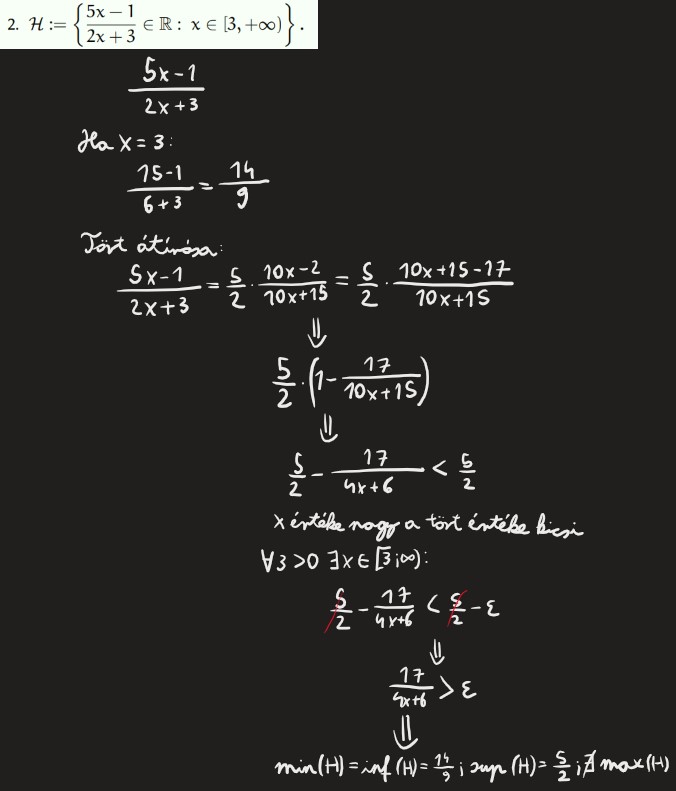 2. H := { (5x − 1)/(2x + 3) ∈ ℝ : x ∈ [3, +∞) } .
(5x-1)/(2x+3)
Ha x = 3:
(15-1)/(6+3) = 14/9
Tört átírása:
(5x-1)/(2x+3) = 5/2 · (10x-2)/(10x+15) = 5/2 · (10x+15-17)/(10x+15)
⇓
5/2 · (1 - 17/(10x+15))
⇓
5/2 - 17/(4x+6) < 5/2
x értéke nagy a tört értéke kicsi
∀3 >0 ∃x∈[3;∞):
5/2 - 17/(4x+6) < 5/2 - ε
⇓
17/(4x+6) > ε
⇓
min(H) = inf(H) = 14/9 ; sup(H) = 5/2 ; ∄ max(H)